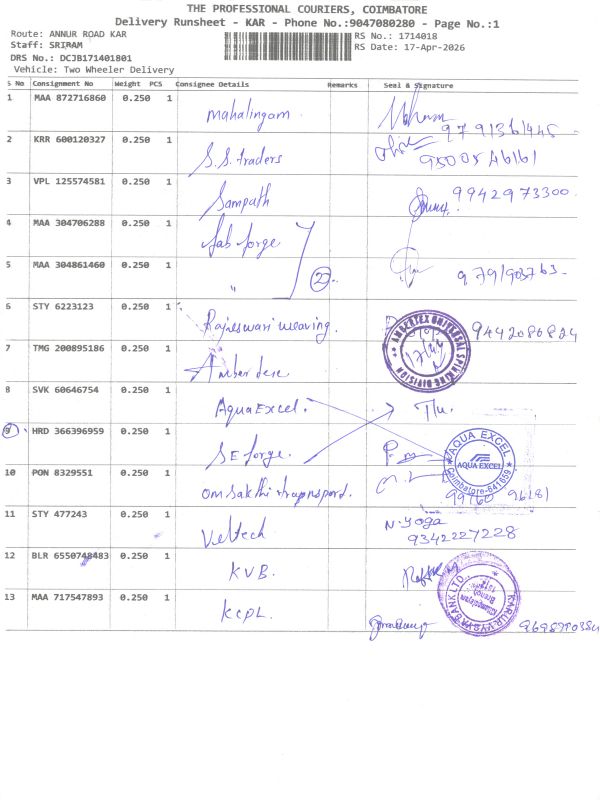 THE PROFESSIONAL COURIERS, COIMBATORE
Delivery Runsheet - KAR - Phone No.:9047080280 - Page No.:1
Route: ANNUR ROAD KAR
RS No.: 1714018
Staff: SRIRAM
RS Date: 17-Apr-2026
DRS No.: DCJB171401801
Vehicle: Two Wheeler Delivery
S No Consignment No Weight PCS Consignee Details Remarks Seal & Signature
1 MAA 872716860 0.250 1 Mahalingam
2 KRR 600120327 0.250 1 S.S. traders 95005 46161
3 VPL 125574581 0.250 1 Sampath 9942973300.
4 MAA 304706288 0.250 1 fab forge
5 MAA 304861460 0.250 1 " 2
6 STY 6223123 0.250 1 Rajeswari weaving. 9442080824
7 TMG 200895186 0.250 1
AMBERTEX UNIVERSAL SPINNING DIVISION
8 SVK 60646754 0.250 1 Aqua Excel.
9 HRD 366396959 0.250 1 SE forge.
AQUA EXCEL
AQUA EXCEL
Coimbatore-641659
10 PON 8329551 0.250 1 Om Sakthi
11 STY 477243 0.250 1 Veltech N. Yoga
9342227228
12 BLR 6550748483 0.250 1 KVB.
KARUR VYSYA BANK LTD.
Branch
13 MAA 717547893 0.250 1 KCPL.